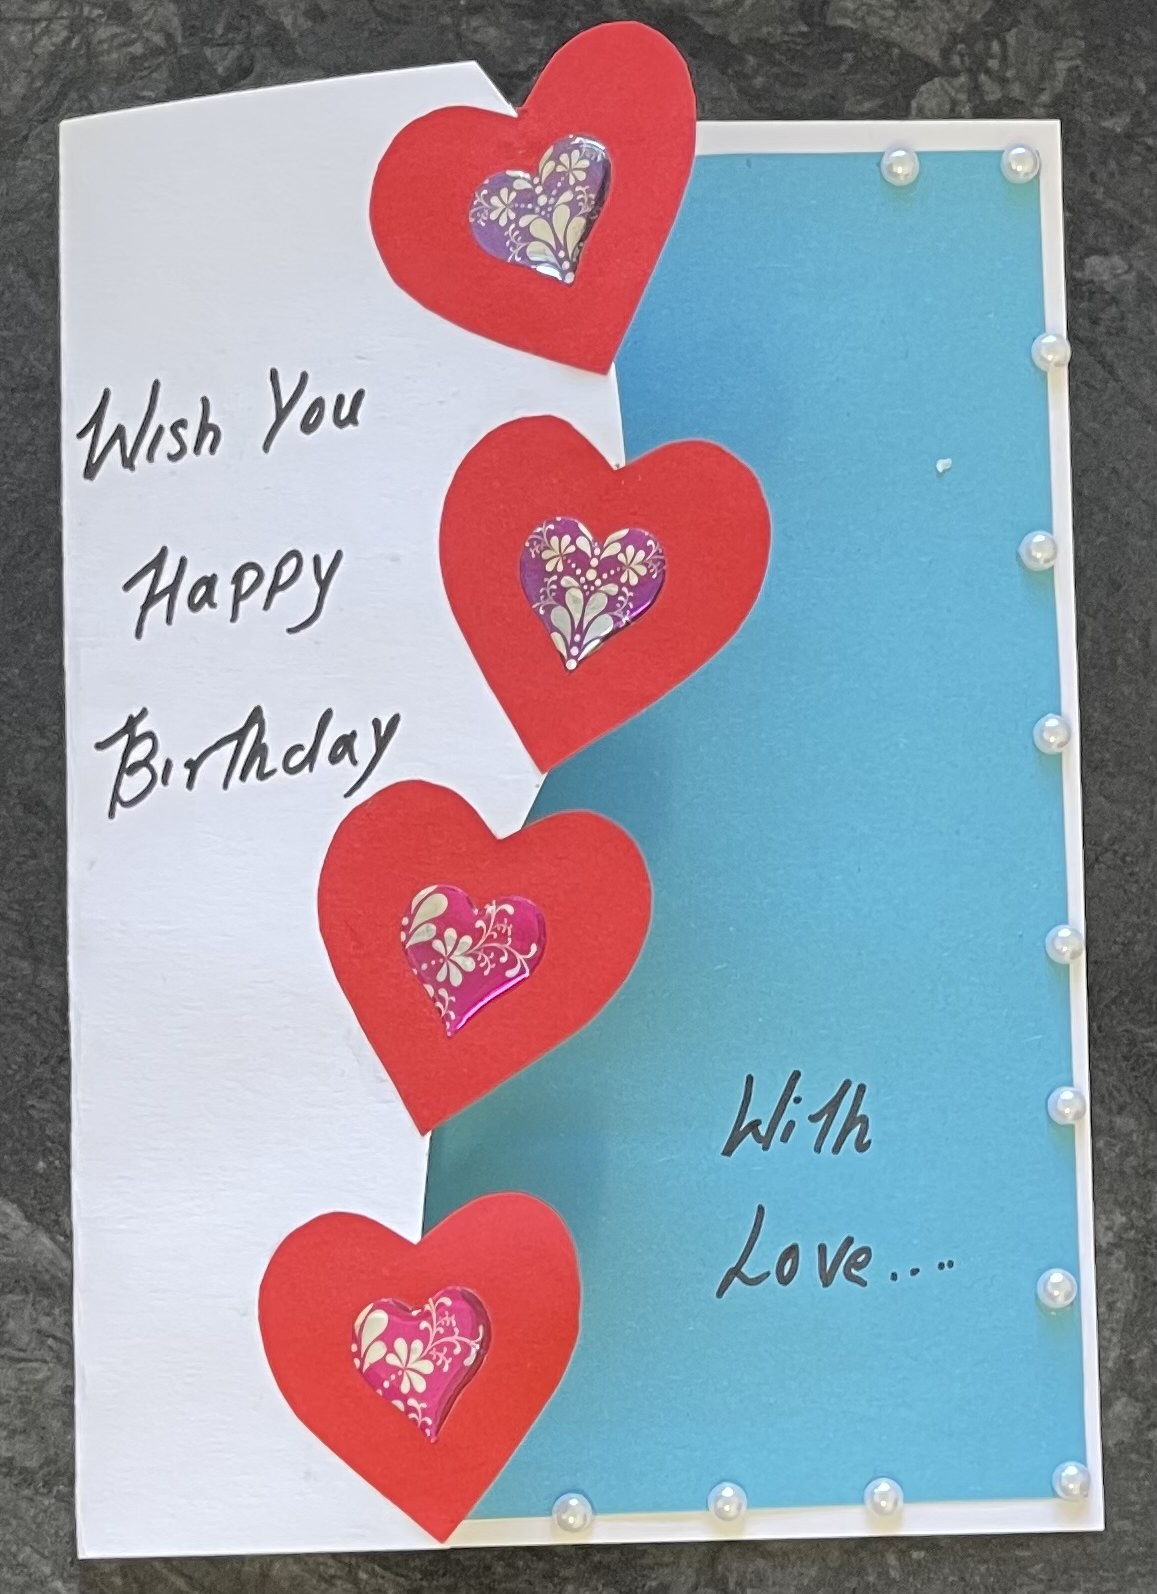 Wish You
Happy
Birthday
With
Love....